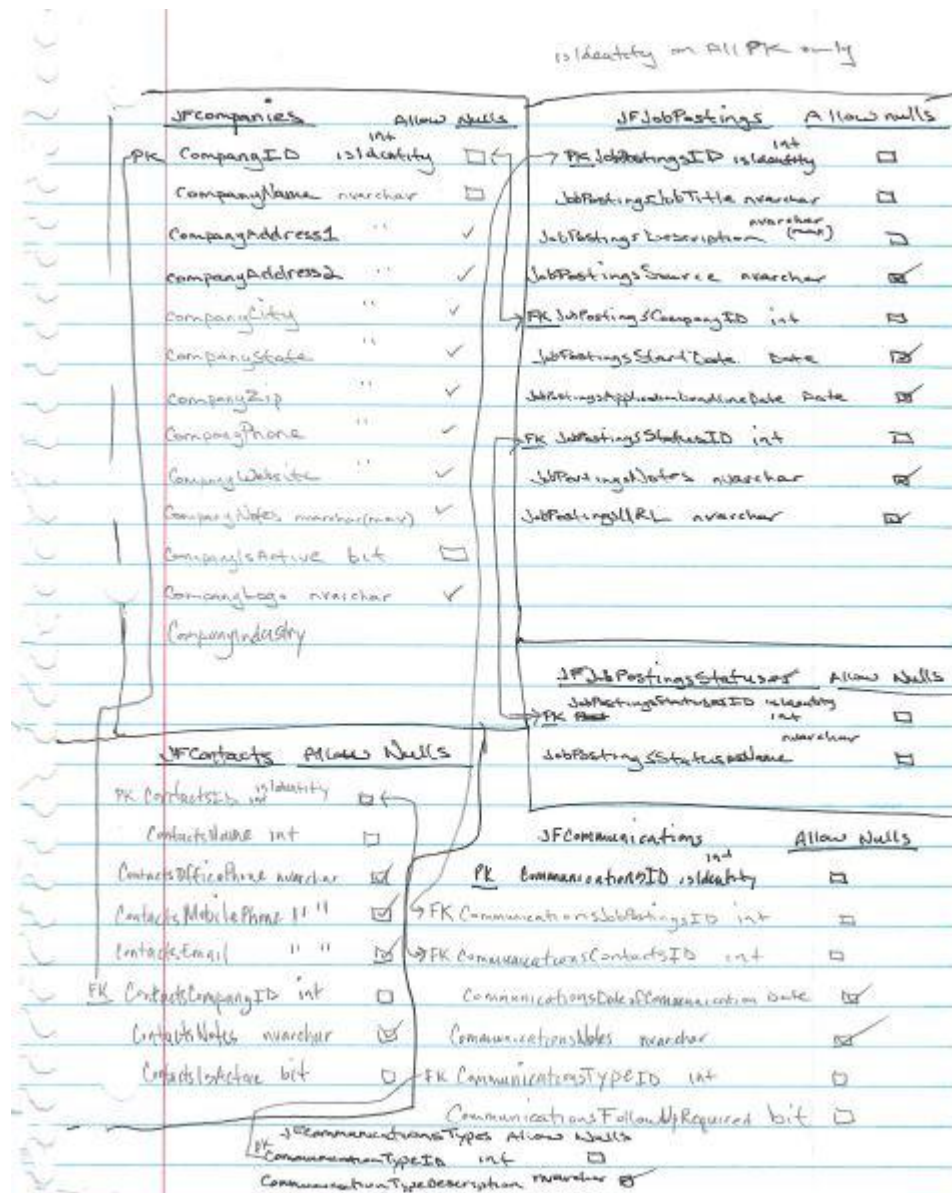 isIdentity on All PK only
JFCompanies Allow Nulls
PK CompanyID int isIdentity
CompanyName nvarchar
CompanyAddress1 "
CompanyAddress2 "
CompanyCity "
CompanyState "
CompanyZip "
CompanyPhone "
CompanyWebsite "
CompanyNotes nvarchar(max)
CompanyIsActive bit
CompanyLogo nvarchar
CompanyIndustry
JFJobPostings Allow nulls
PK JobPostingsID int isIdentity
JobPostingsJobTitle nvarchar
JobPostingsDescription nvarchar (max)
JobPostingsSource nvarchar
FK JobPostingsCompanyID int
JobPostingsStartDate Date
JobPostingsApplicationDeadlineDate Date
FK JobPostingsStatusID int
JobPostingsNotes nvarchar
JobPostingsURL nvarchar
JFJobPostingsStatuses Allow Nulls
JobPostingsStatusesID isIdentity
PK int
nvarchar
JobPostingsStatusesName
JFContacts Allow Nulls
PK ContactsID int isIdentity
ContactsName int
ContactsOfficePhone nvarchar
ContactsMobilePhone " "
ContactsEmail " "
FK ContactsCompanyID int
ContactsNotes nvarchar
ContactsIsActive bit
JFCommunications Allow Nulls
PK CommunicationsID int isIdentity
FK CommunicationsJobPostingsID int
FK CommunicationsContactsID int
CommunicationsDateofCommunication Date
CommunicationsNotes nvarchar
FK CommunicationsTypeID int
CommunicationsFollowUpRequired bit
JFCommunicationsTypes Allow Nulls
PK CommunicationTypeID int
CommunicationTypeDescription nvarchar